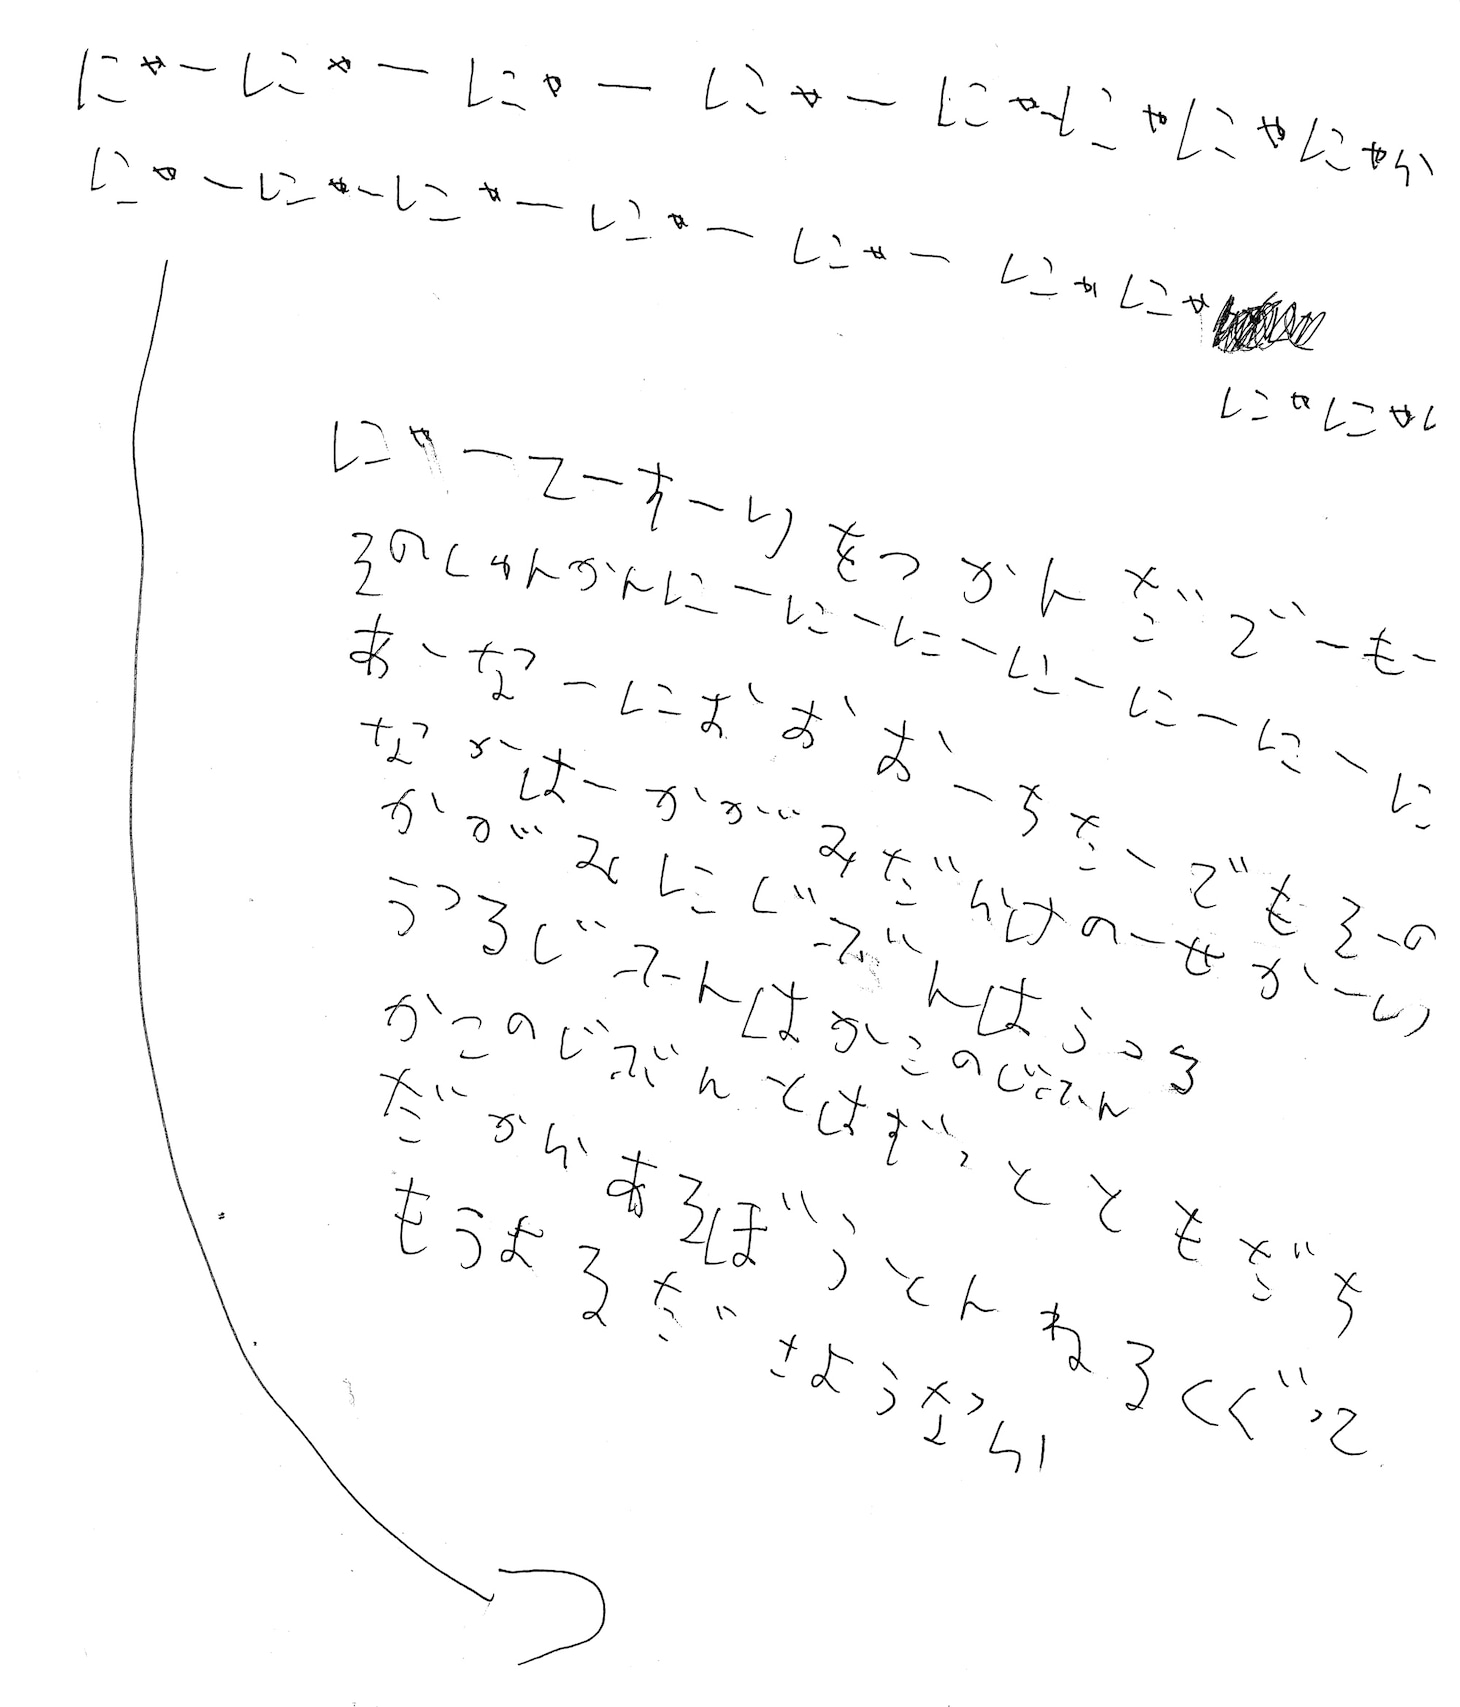 にゃーにゃーにゃーにゃーにゃーにゃにゃにゃか
にゃーにゃーにゃーにゃーにゃーにゃにゃ
にゃにゃに
にゃーてーすーりをつかんだでーもー
そのしゅんかんにーにーにーにーにーにーに
あーなーにおおおーちたーでもそーの
なかはーかがみだらけのーせかーい
かがみにじぶんはうつる
うつるじぶんはかこのじぶん
かこのじぶんとはずっとともだち
だからあそぼうとんねるくぐって
もうよるださようなら